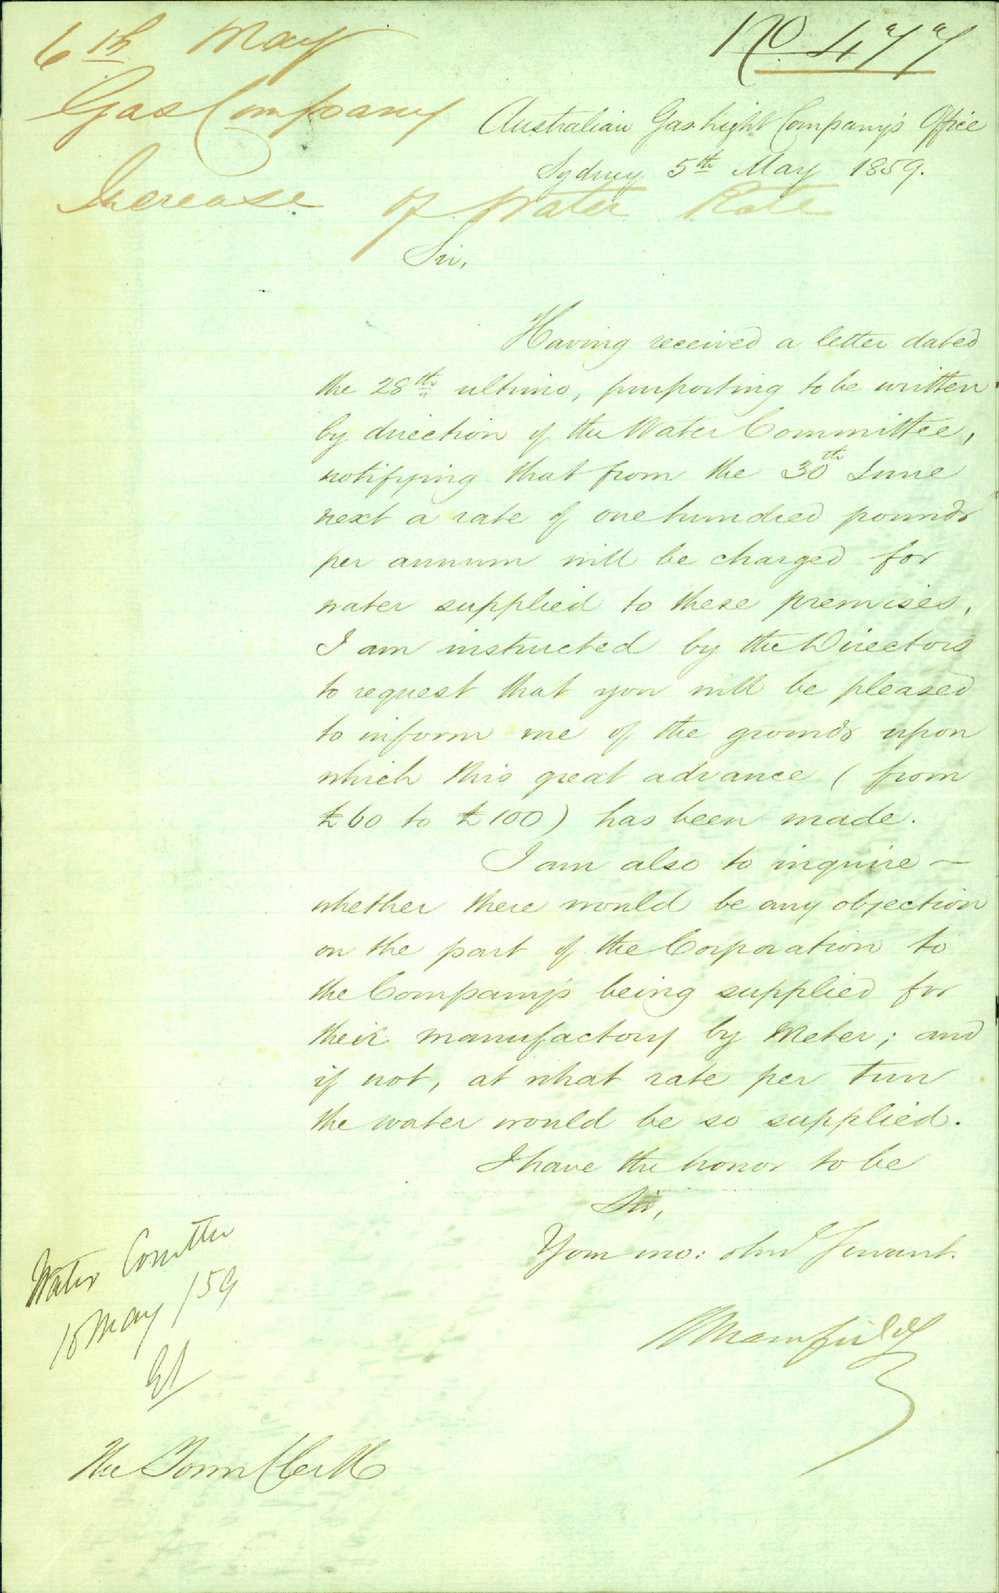 6th May
No 477
Gas Company
Australian Gas Light Company's Office
Sydney 5th May 1859.
Increase of Water Rate
Sir,
Having received a letter dated
the 28th ultimo, purporting to be written
by direction of the Water Committee,
notifying that from the 30th June
next a rate of one hundred pounds
per annum will be charged for
water supplied to these premises,
I am instructed by the Directors
to request that you will be pleased
to inform me of the grounds upon
which this great advance (from
£60 to £100) has been made.
I am also to inquire —
whether there would be any objection
on the part of the Corporation to
the Company's being supplied for
their manufactory by Meter; and
if not, at what rate per tun
the water would be so supplied.
I have the honor to be
Sir,
Your mo: obnt Servant.
Mansfield
Water Comttee
10 May /59
The Town Clerk